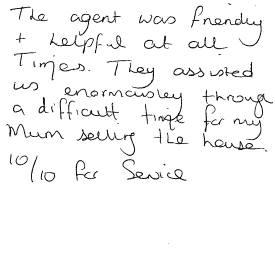 The agent was friendly
+ helpful at all
Times. They assisted
us enormousley through
a difficult time for my
Mum selling the house.
10/10 for Service